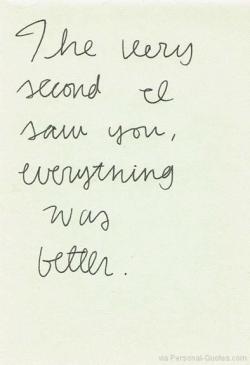 The very
second I
saw you,
everything
was
better.
via Personal-Quotes.com